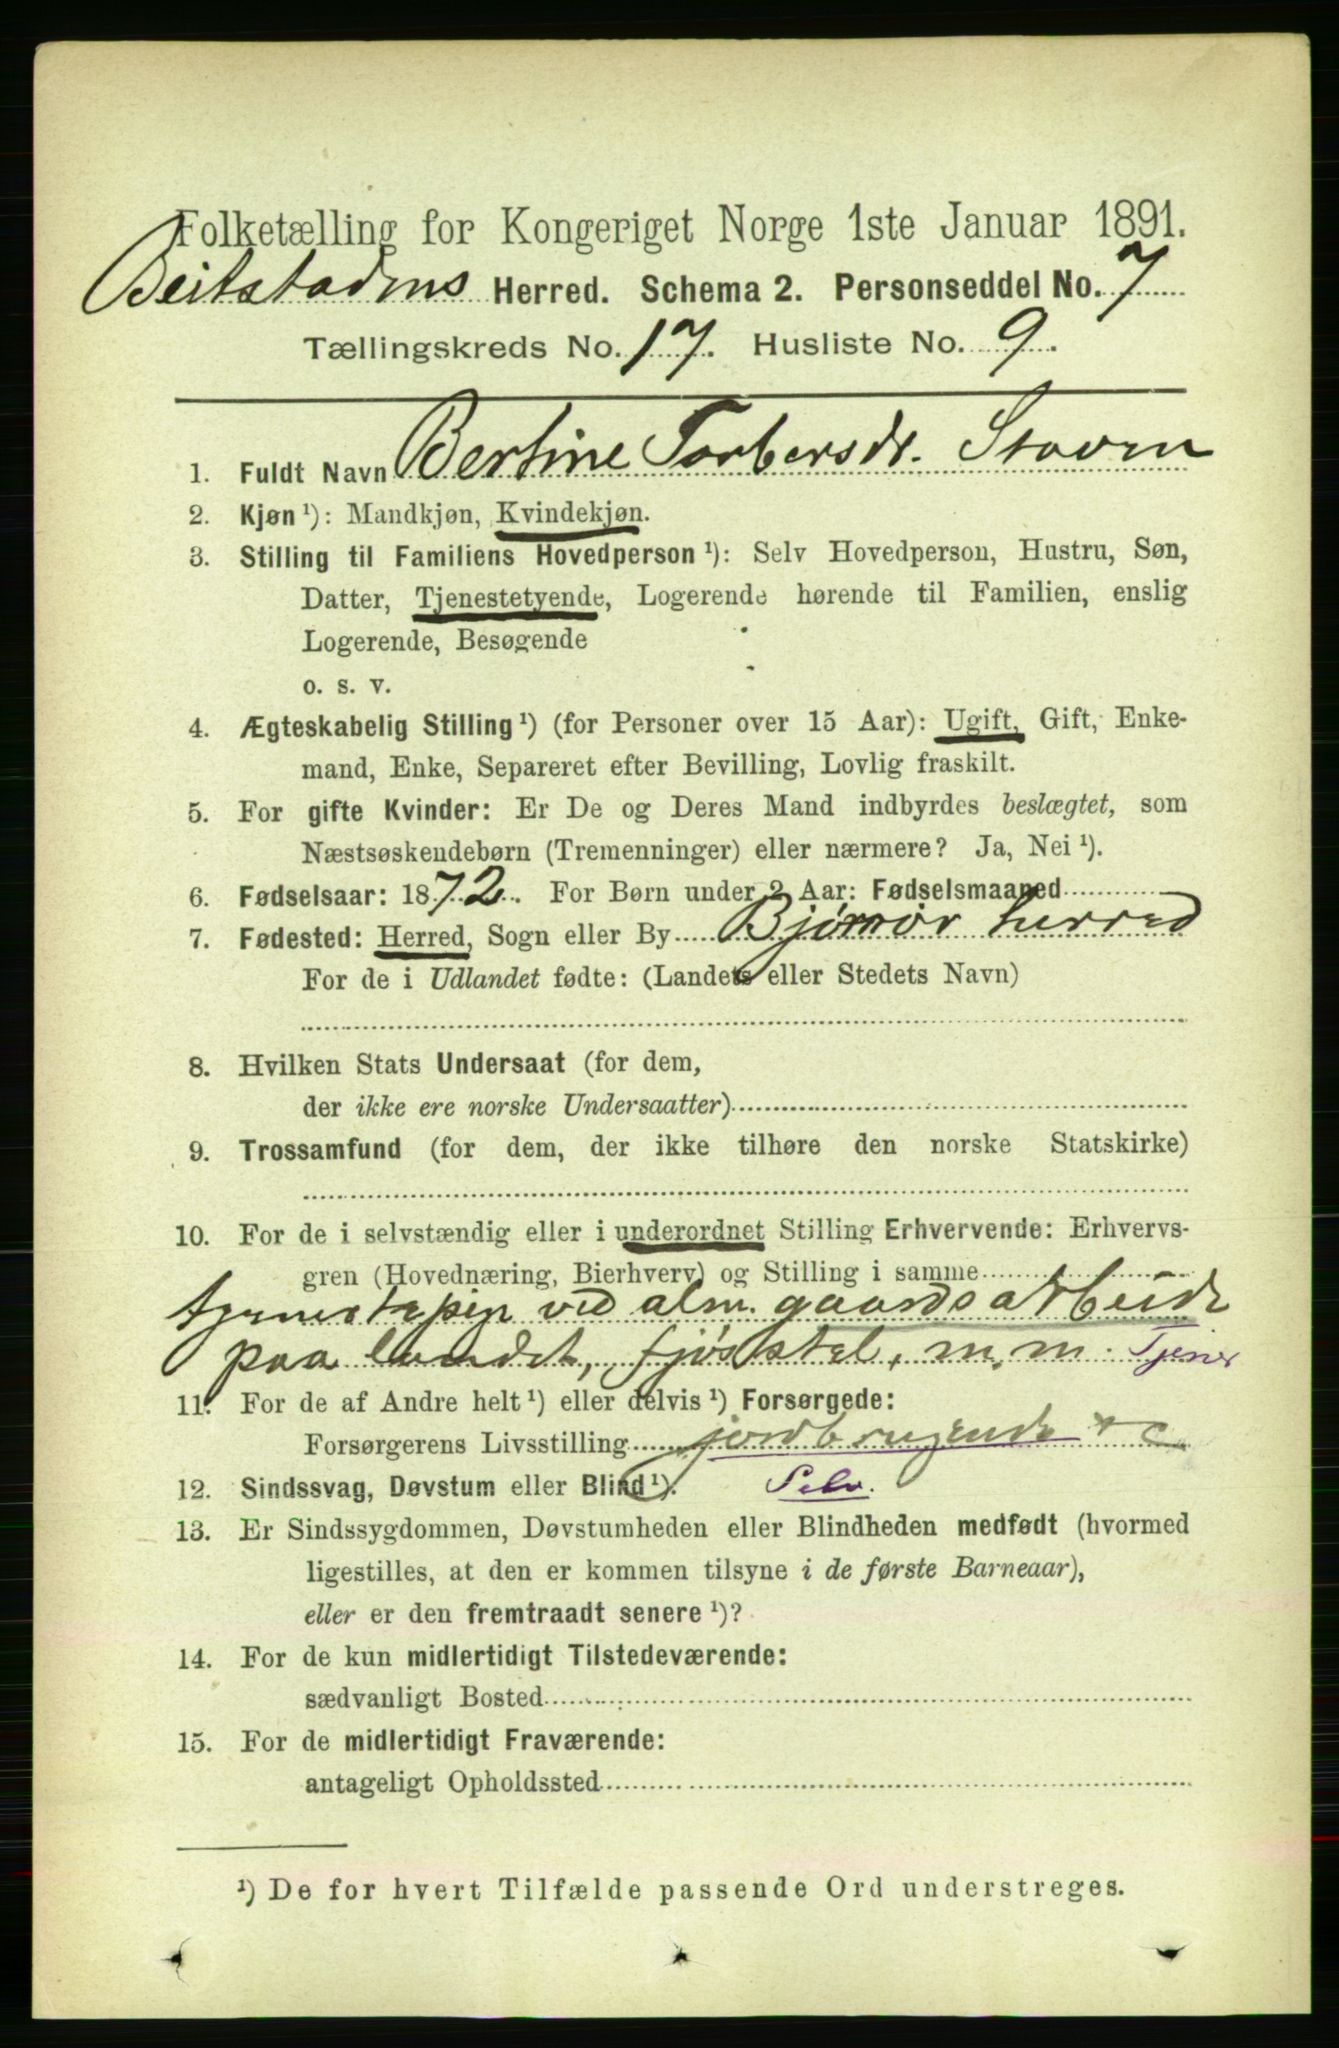 Folketælling for Kongeriget Norge 1ste Januar 1891.
Beitstadens Herred. Schema 2. Personseddel No. 7
Tællingskreds No. 17. Husliste No. 9.
1. Fuldt Navn Bertine Torbersdr. Staven
2. Kjøn ¹): Mandkjøn, Kvindekjøn.
3. Stilling til Familiens Hovedperson ¹): Selv Hovedperson, Hustru, Søn,
Datter, Tjenestetyende, Logerende hørende til Familien, enslig
Logerende, Besøgende
o. s. v.
4. Ægteskabelig Stilling ¹) (for Personer over 15 Aar): Ugift, Gift, Enke-
mand, Enke, Separeret efter Bevilling, Lovlig fraskilt.
5. For gifte Kvinder: Er De og Deres Mand indbyrdes beslægtet, som
Næstsøskendebørn (Tremenninger) eller nærmere? Ja, Nei ¹).
6. Fødselsaar: 1872. For Børn under 2 Aar: Fødselsmaaned
7. Fødested: Herred, Sogn eller By Bjørnør herred
For de i Udlandet fødte: (Landets eller Stedets Navn)
8. Hvilken Stats Undersaat (for dem,
der ikke ere norske Undersaatter)
9. Trossamfund (for dem, der ikke tilhøre den norske Statskirke)
10. For de i selvstændig eller i underordnet Stilling Erhvervende: Erhvervs-
gren (Hovednæring, Bierhverv) og Stilling i samme
tjenestepige ved alm. gaardsarbeide
paa landet, fjøsstel, m. m. Tjener
11. For de af Andre helt ¹) eller delvis ¹) Forsørgede:
Forsørgerens Livsstilling jordbrugende
12. Sindssvag, Døvstum eller Blind ¹). Selv.
13. Er Sindssygdommen, Døvstumheden eller Blindheden medfødt (hvormed
ligestilles, at den er kommen tilsyne i de første Barneaar),
eller er den fremtraadt senere ¹)?
14. For de kun midlertidigt Tilstedeværende:
sædvanligt Bosted
15. For de midlertidigt Fraværende:
antageligt Opholdssted
¹) De for hvert Tilfælde passende Ord understreges.